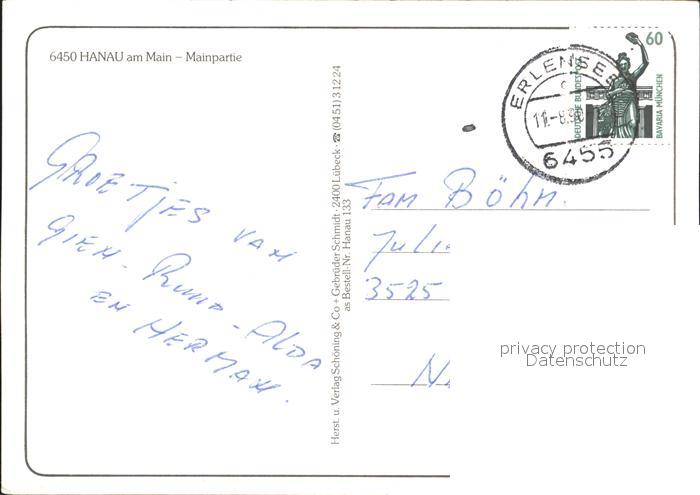 6450 HANAU am Main – Mainpartie
GROETJES VAN
GIEH - RUUD - ALDA
EN HERMAN.
Herst. u. Verlag Schöning & Co + Gebrüder Schmidt · 2400 Lübeck · ☎ (04 51) 3 12 24
as Bestell-Nr. Hanau 133
60
DEUTSCHE BUNDESPOST
BAVARIA MÜNCHEN
ERLENSEE
c
11.-8.90
6455
Fam Böhn.
Juli
3525
N
privacy protection
Datenschutz